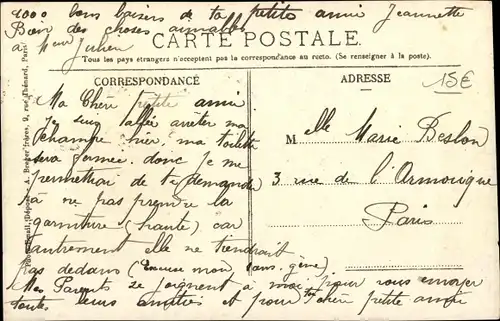 1000 bons baisers de ta petite amie Jeannette
Bien des choses aimables
à Mme Julien
CARTE POSTALE
Tous les pays étrangers n'acceptent pas la correspondance au recto. (Se renseigner à la poste).
CORRESPONDANCE
ADRESSE
15€
Ma Chère petite amie
Je suis allée arrêter ma
échampe hier, ma toilette
sera fermée. donc je me
permettrai de te demander
à ne pas prendre la
garniture (haute) car
autrement elle ne tiendrait
pas dedans (Excuse mon sans-gêne)
Mes Parents se joignent à moi pour vous envoyer
toutes leurs amitiés et pour toi chère petite amie
Melle Marie Beslon
3 rue de l'Armorique
Paris
A. Breger frères, 9, rue Thénard, Paris